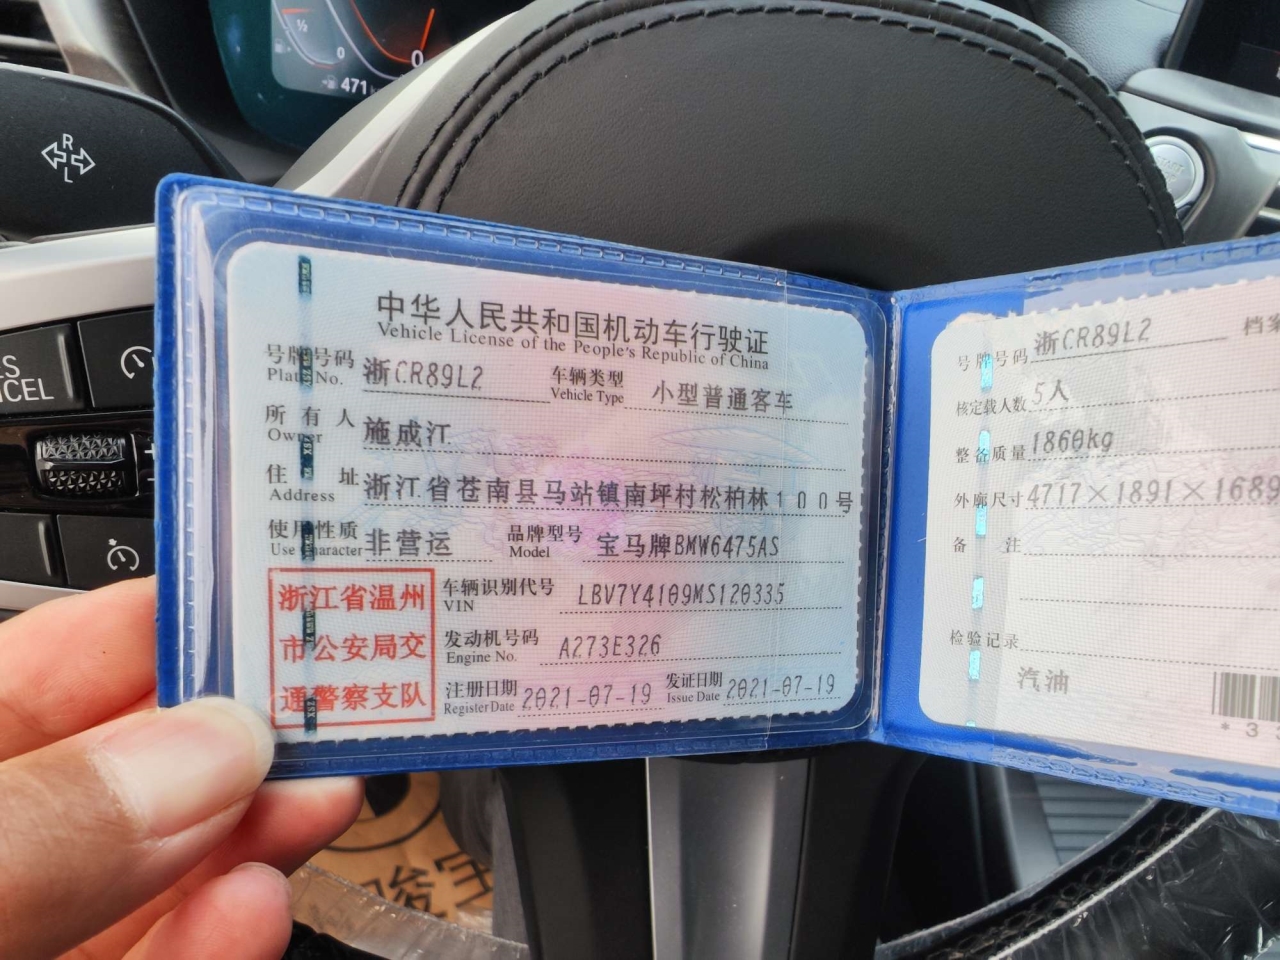 R
L
½
0
0
471
START
CEL
中华人民共和国机动车行驶证
Vehicle License of the People's Republic of China
号牌号码 浙CR89L2 车辆类型 小型普通客车
Plate No. Vehicle Type
所有人 施成江
Owner
住址 浙江省苍南县马站镇南坪村松柏林100号
Address
使用性质 非营运 品牌型号 宝马牌BMW6475AS
Use Character Model
浙江省温州
市公安局交
通警察支队
车辆识别代号 LBV7Y4109MS120335
VIN
发动机号码 A273E326
Engine No.
注册日期 2021-07-19 发证日期 2021-07-19
Register Date Issue Date
号牌号码 浙CR89L2 档案
核定载人数 5人
整备质量 1860kg
外廓尺寸 4717×1891×1689
备注
检验记录
汽油
*3
骏宝